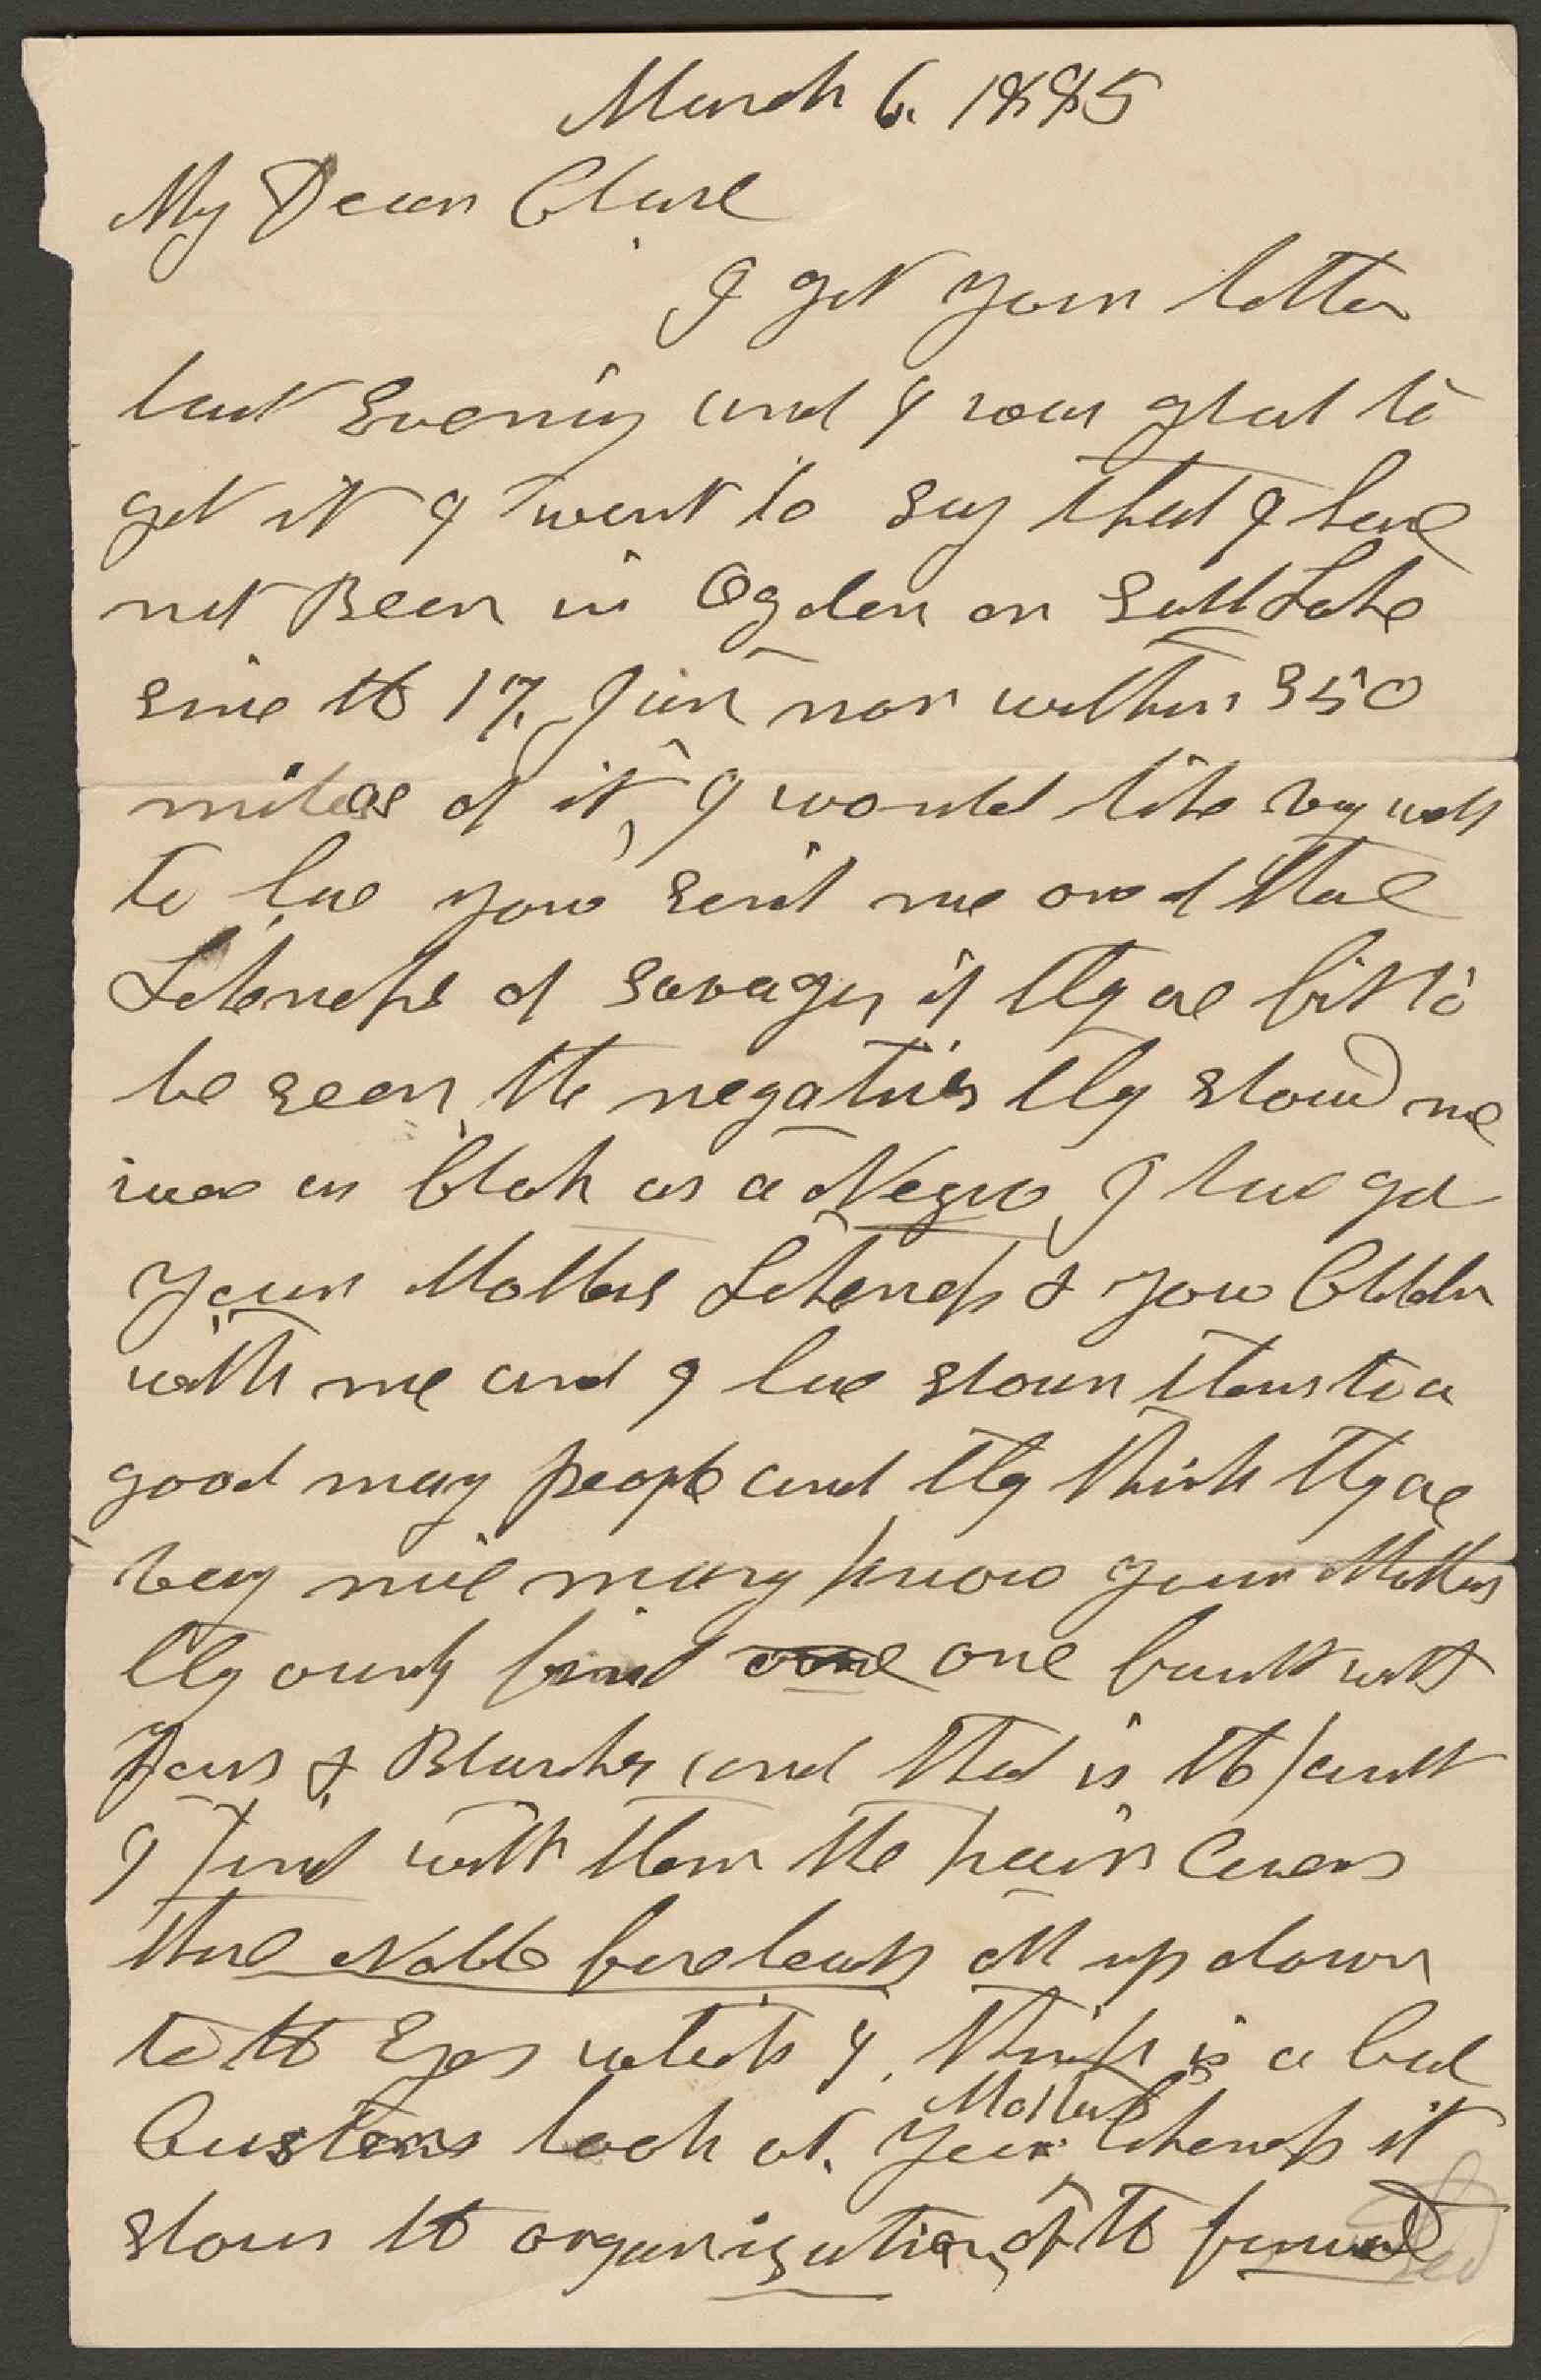 March 6. 1885
My Dear Clare
I got your letter
last Evening and I was glad to
get it I want to say that I have
not Been in Ogden or Salt Lake
since the 17. Jan nor within 350
miles of it, I would like very well
to have you send me one of those
Likeness of Savages if they are fit to
be seen, the negatives they showed me
was as black as a Negro, I have got
your Mothers Likeness & your Children
with me and I have shown them to a
good many people and they think they are
very nice many know your Mothers
they only find one fault with
yours & Blanche and that is the fault
I find with them the hair Covers
there Noble foreheads all up down
to the Eyes which I. think is a bad
Custom look at. your Mothers likeness it
shows the organization, of the female